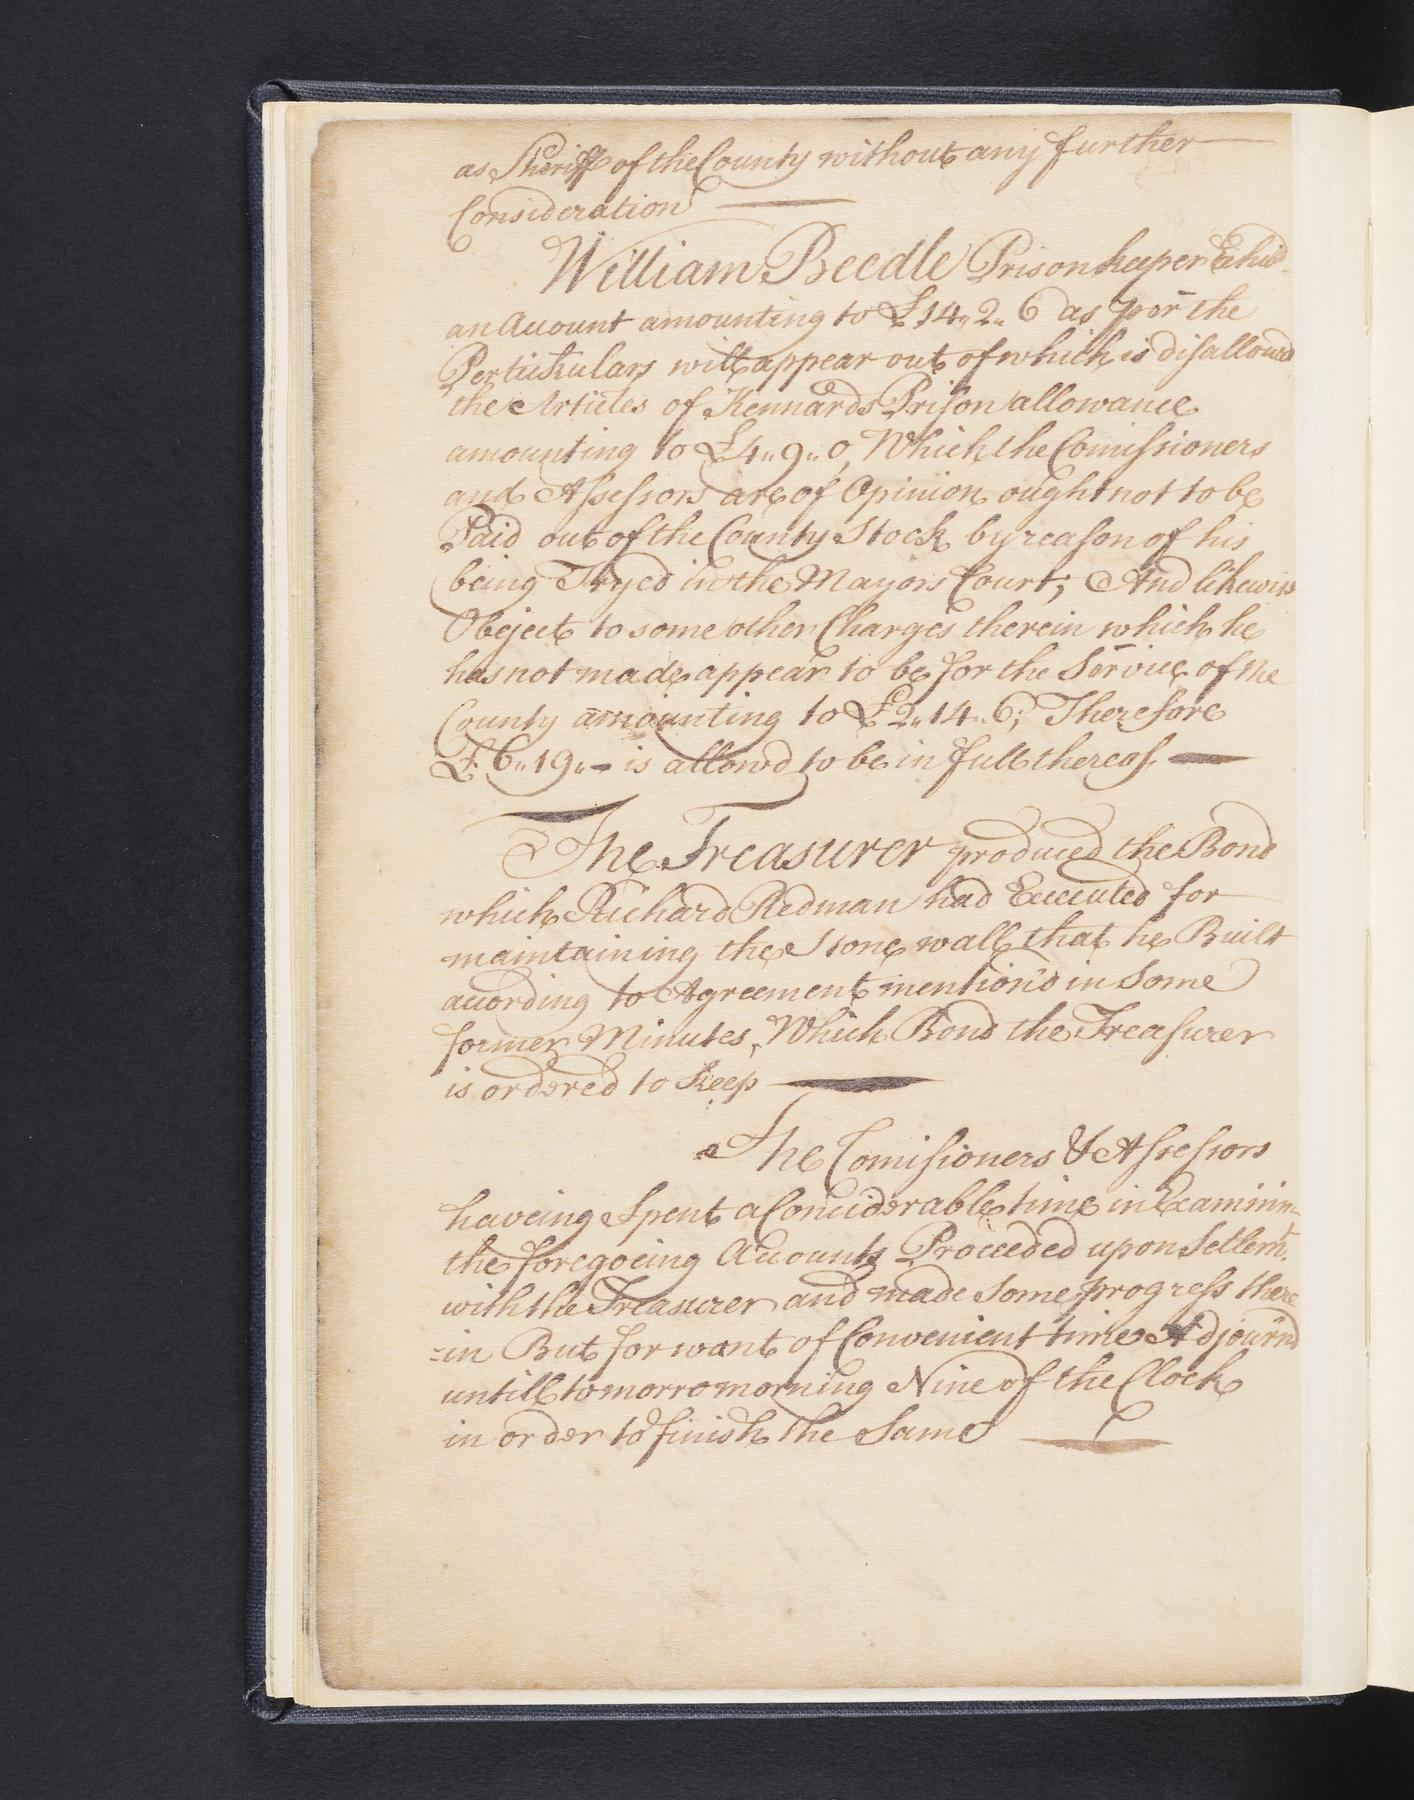 as Sheriff of the County without any further
Consideration
William Beedle Prison keeper Exhib
an Account amounting to £14,, 2,, 6 as p̄ the
Pertickulars will appear out of which is disallowd
the Articles of Kennards Prison allowance
amounting to £4,, 9,, 0, Which the Comissioners
and Assessors are of Opinion ought not to be
Paid out of the County Stock by reason of his
being Tryed in the Mayors Court; And likewise
Obeject to some other Charges therein which he
has not made appear to be for the Service of the
County amounting to £2,, 14,, 6; Therefore
£6,, 19,, - is allowd to be in full thereof
The Treasurer produced the Bond
which Richard Redman had Executed for
maintaining the Stone wall that he Built
according to Agreement mention'd in Some
former Minutes, Which Bond the Treasurer
is ordered to keep
The Comisioners & Assessors
haveing Spent a Conciderable time in Examinin
the foregoeing Accounts Proceeded upon Settlemt.
with the Treasurer and made Some progress there
=in But for want of Convenient time Adjournd
untill tomorro morning Nine of the Clock
in order to finish the Same